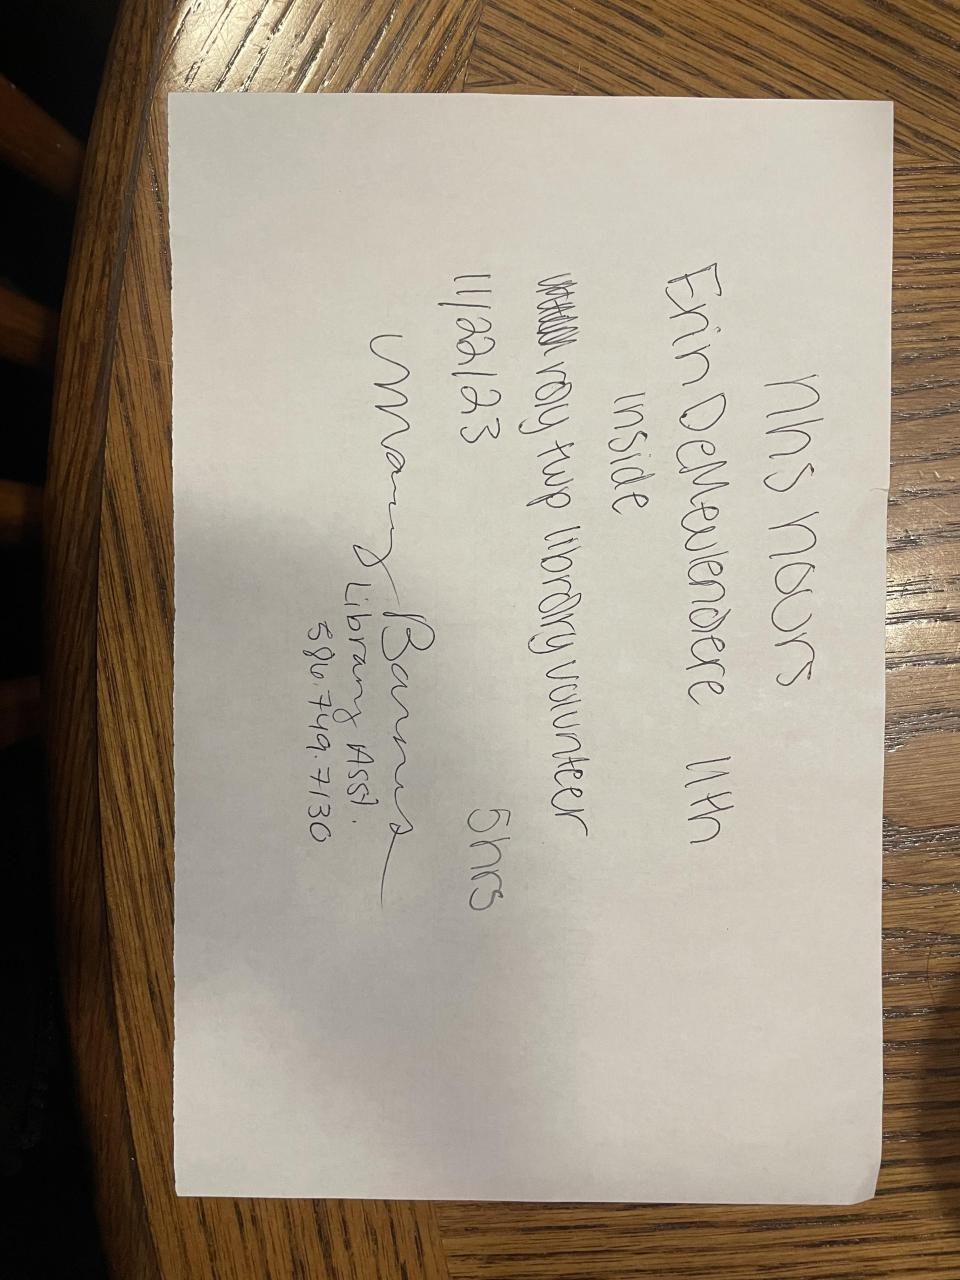 nhs hours
Erin DeMeulendere 11th
inside
ray twp library volunteer
11/22/23 5hrs
Mary Barnes
Library Asst.
586.749.7130